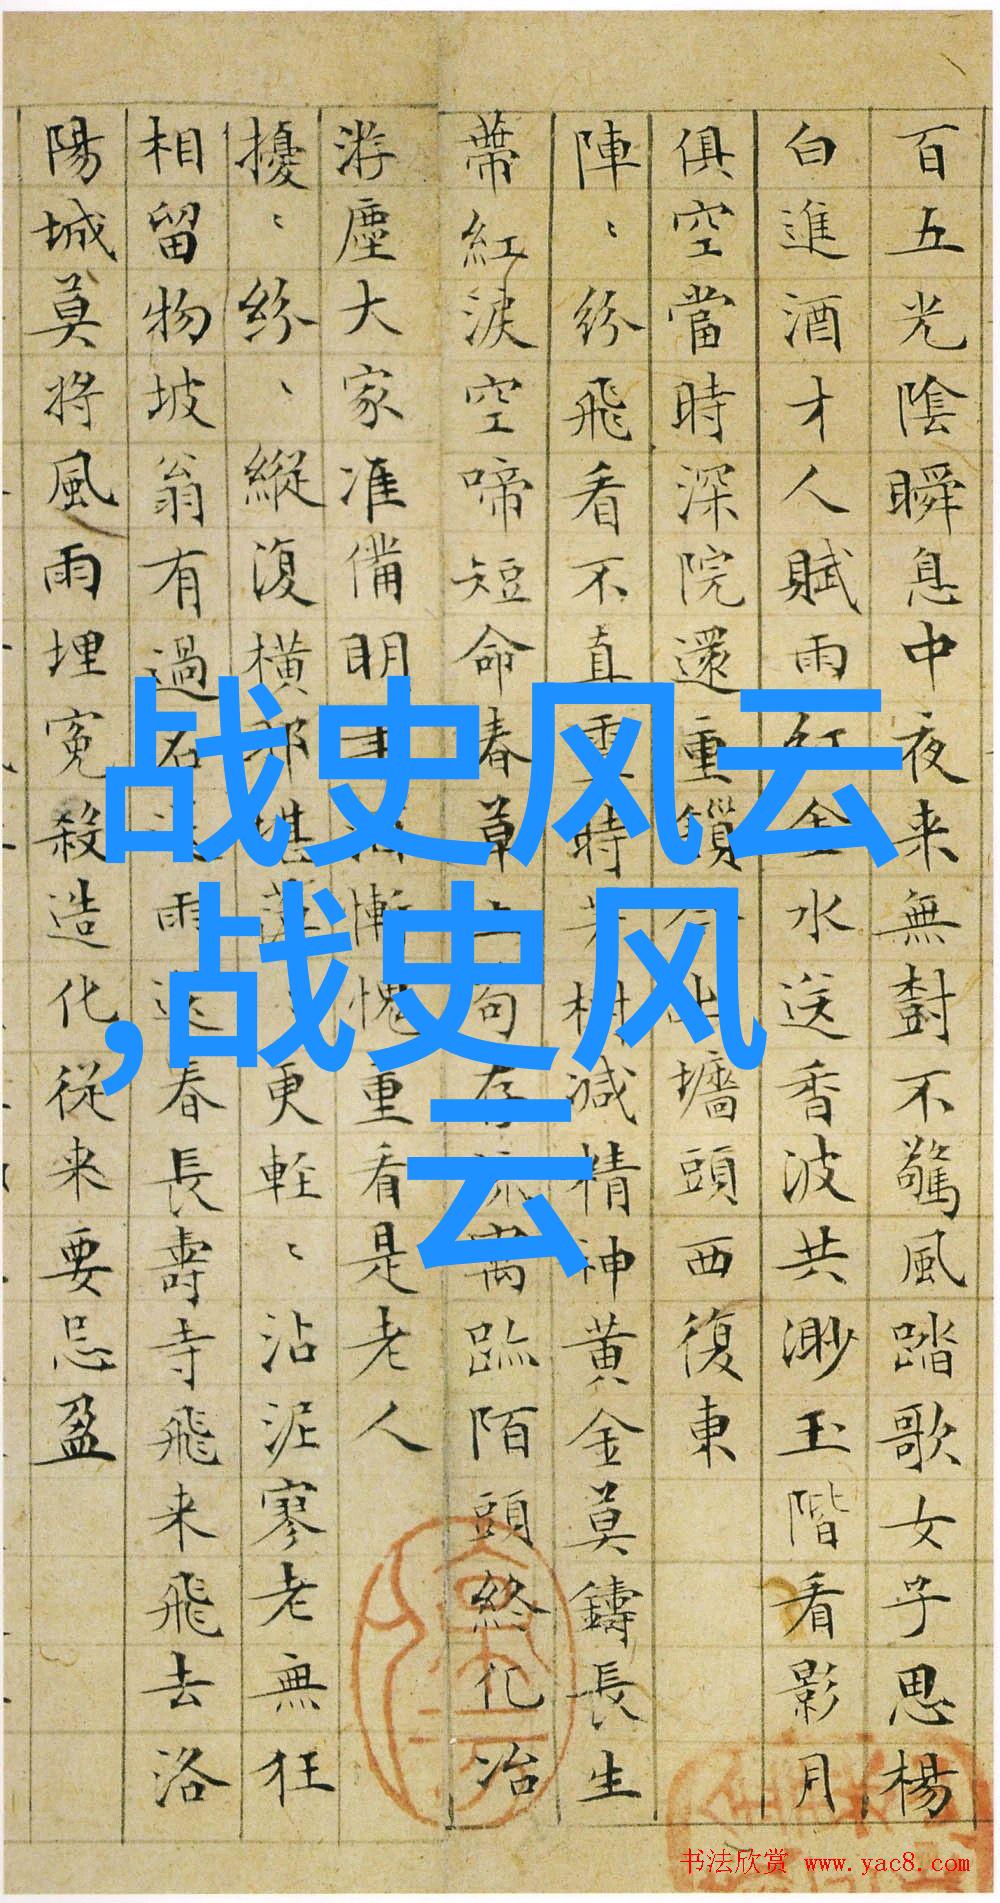 百五光陰瞬息中夜来無對不驚風踏歌女子思楊
白進酒才人賦雨紅金水送香波共渺玉階看影月
俱空當時深院還重鎖今出墻頭西復東
陣〻紛飛看不真霎時芳樹減精神黄金莫鑄長生
蒂紅淚空啼短命春草上苟存流寓跡陌頭終化冶
游塵大家准備明年酒慚愧重看是老人
擾〻紛〻縱復横那堪薄〻更輕〻沾泥寥老無狂
相留物坡翁有過名雨送春長壽寺飛来飛去洛
陽城莫將風雨埋寃殺造化従来要忌盈
战史风云
,战史风
云
书法欣赏 www.yac8.com